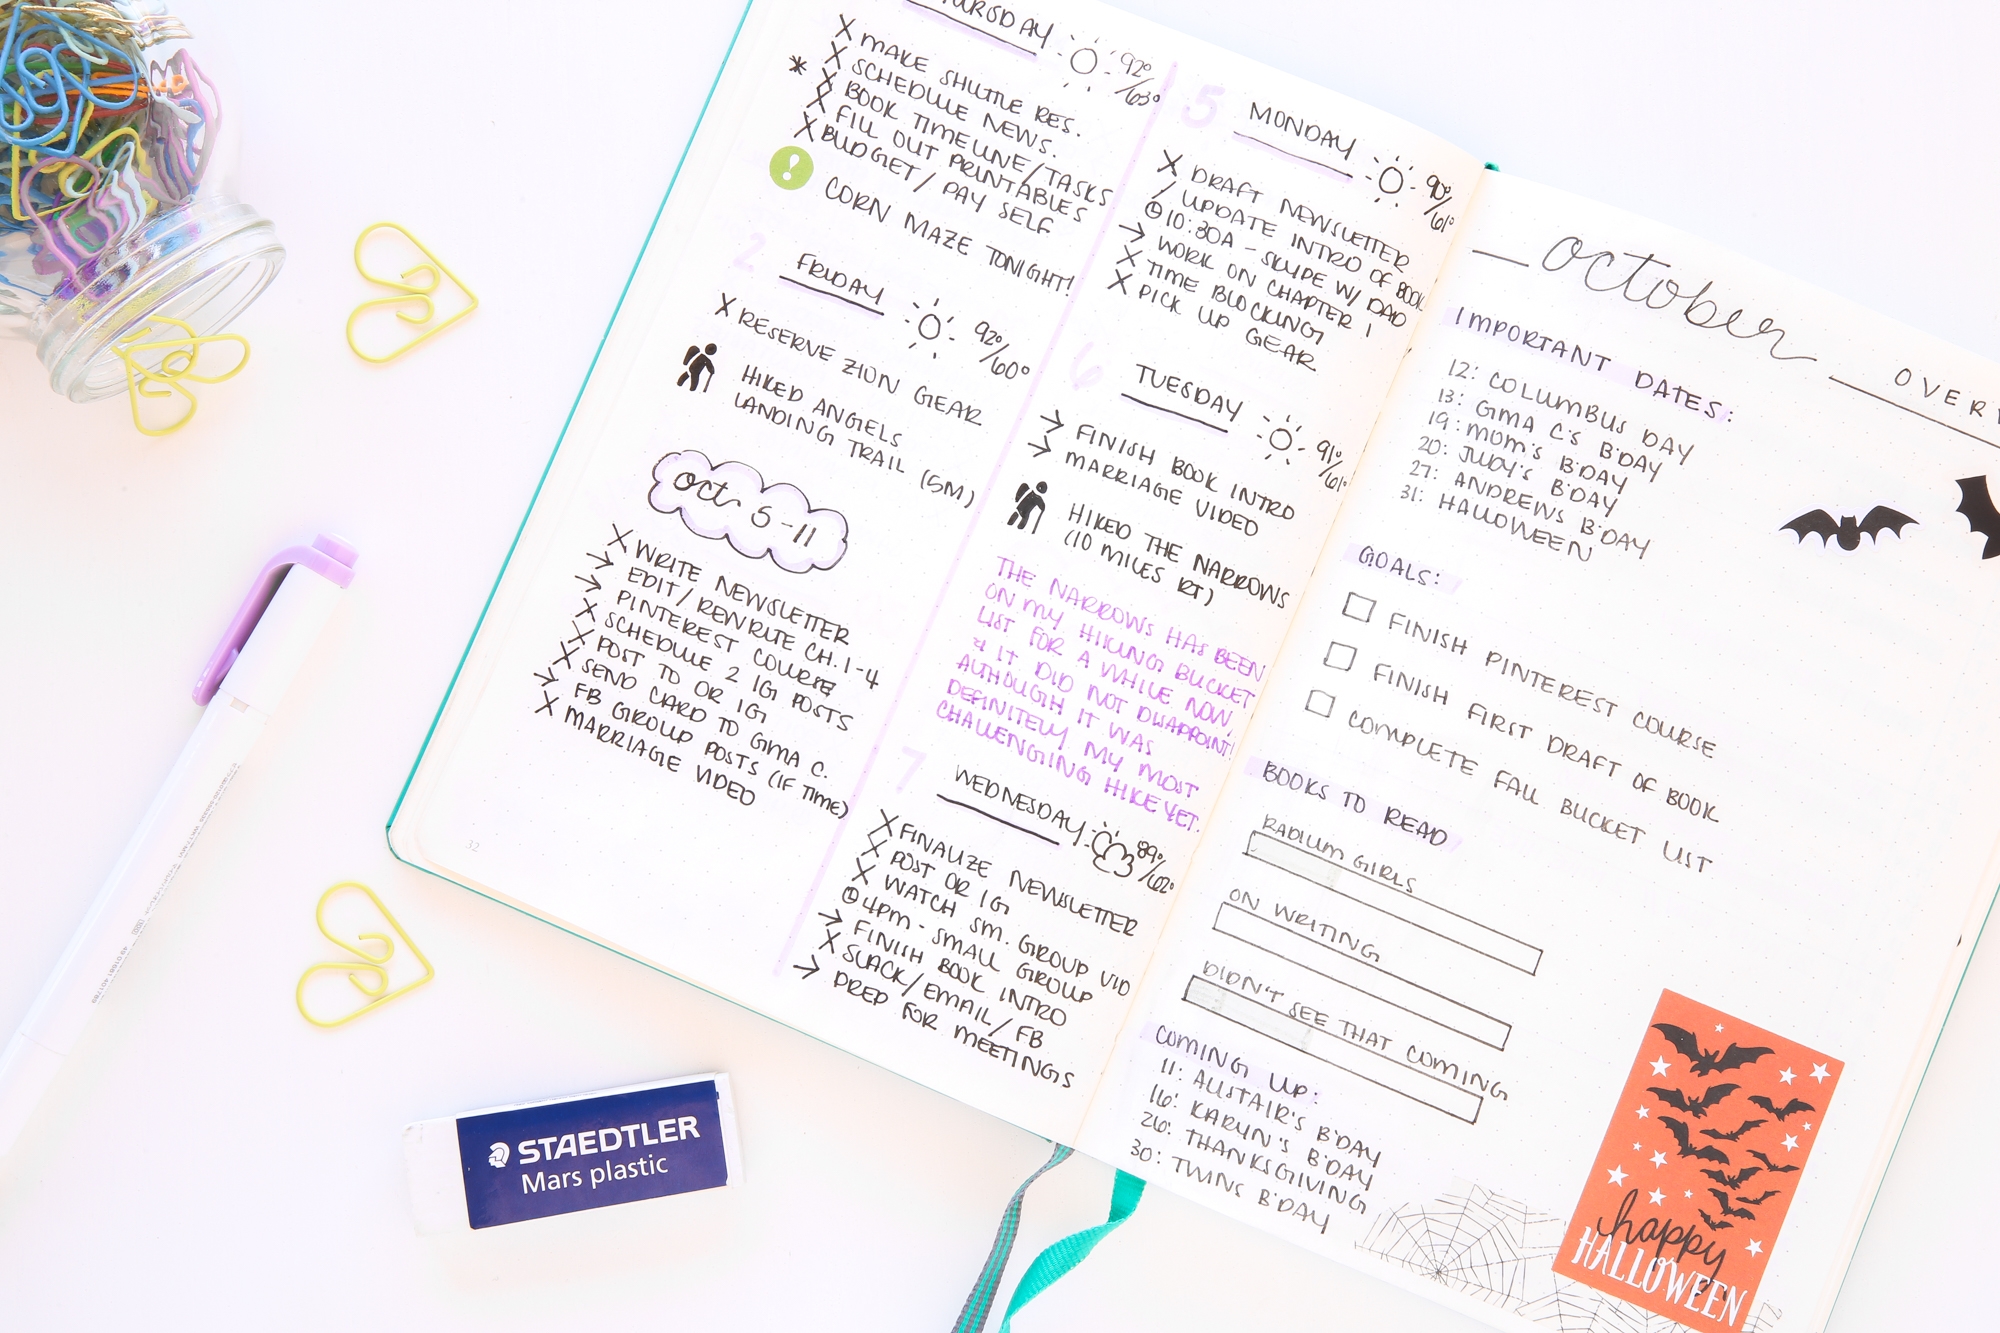 THURSDAY 92°/63°
X MAKE SHUTTLE RES.
X SCHEDULE NEWS.
* X BOOK TIMELINE/TASKS
X FILL OUT PRINTABLES
X BUDGET/PAY SELF
! CORN MAZE TONIGHT!
2 FRIDAY 92°/60°
X RESERVE ZION GEAR
HIKED ANGELS
LANDING TRAIL (5M)
oct 5-11
X WRITE NEWSLETTER
→ EDIT/REWRITE CH. 1-4
→ PINTEREST COURSE
X SCHEDULE 2 IG POSTS
X POST TO OR IG
X SEND CARD TO GMA C.
→ FB GROUP POSTS (IF TIME)
X MARRIAGE VIDEO
32
5 MONDAY 90°/61°
X DRAFT NEWSLETTER
/ UPDATE INTRO OF BOOK
10:30A - SKYPE W/ DAD
→ WORK ON CHAPTER 1
X TIME BLOCKING
X PICK UP GEAR
6 TUESDAY 91°/61°
→ FINISH BOOK INTRO
→ MARRIAGE VIDEO
HIKED THE NARROWS
(10 MILES RT)
THE NARROWS HAS BEEN
ON MY HIKING BUCKET
LIST FOR A WHILE NOW,
& IT DID NOT DISAPPOINT!
ALTHOUGH IT WAS
DEFINITELY MY MOST
CHALLENGING HIKE YET.
7 WEDNESDAY 89°/62°
X FINALIZE NEWSLETTER
X POST OR IG
X WATCH SM. GROUP VID
4PM - SMALL GROUP
→ FINISH BOOK INTRO
X SLACK/EMAIL/FB
→ PREP FOR MEETINGS
october
OVER
IMPORTANT DATES:
12: COLUMBUS DAY
13: GMA C'S B'DAY
19: MOM'S B'DAY
20: JUDY'S B'DAY
27: ANDREWS B'DAY
31: HALLOWEEN
GOALS:
FINISH PINTEREST COURSE
FINISH FIRST DRAFT OF BOOK
COMPLETE FALL BUCKET LIST
BOOKS TO READ
RADIUM GIRLS
ON WRITING
DIDN'T SEE THAT COMING
COMING UP:
11: ALISTAIR'S B'DAY
16: KARYN'S B'DAY
26: THANKSGIVING
30: TWINS B'DAY
happy
HALLOWEEN
STAEDTLER
Mars plastic